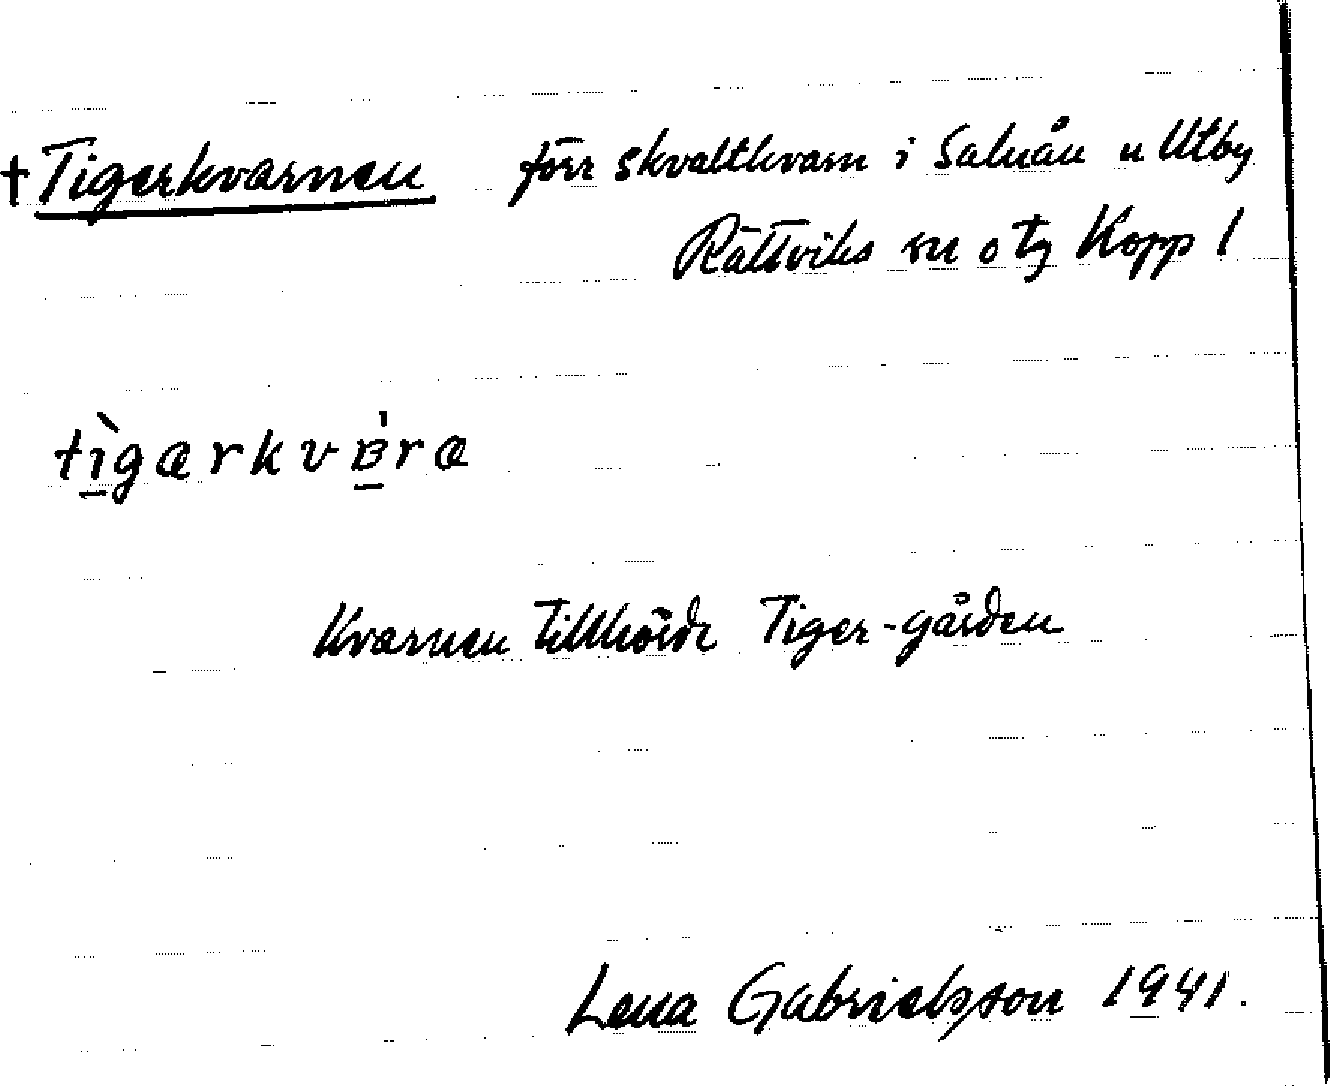 †Tigerkvarnen förr skvaltkvarn i Saluån u Utby
Rättviks sn o tg Kopp l
tìgærkvʙ̀ræ
Kvarnen tillhörde Tiger-gården
Lena Gabrielsson 1941.